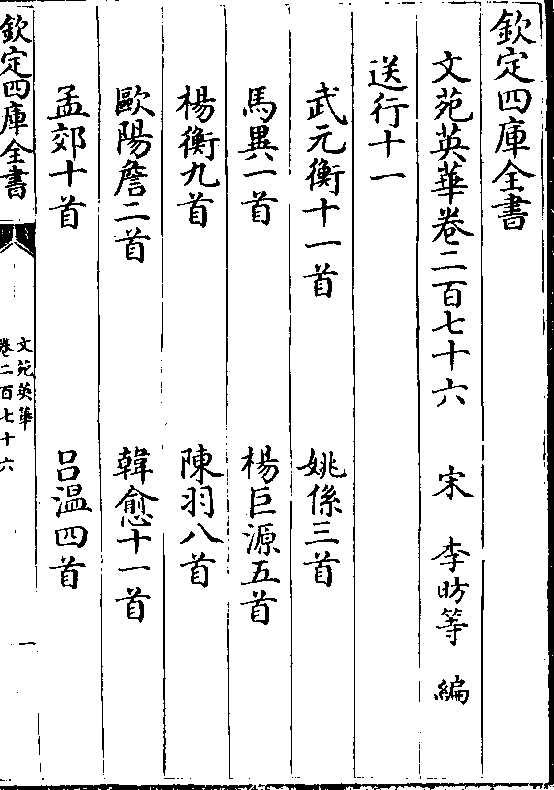 欽定四庫全書
文苑英華卷二百七十六 宋 李昉等 編
送行十一
武元衡十一首 姚係三首
馬異一首 楊巨源五首
楊衡九首 陳羽八首
歐陽詹二首 韓愈十一首
孟郊十首 吕温四首
欽定四庫全書
文苑英華
卷二百七十六
一